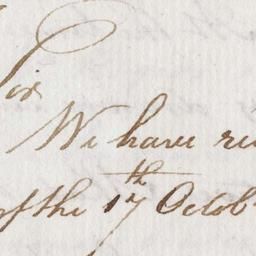 Sir
We have re
of the 17th Octob